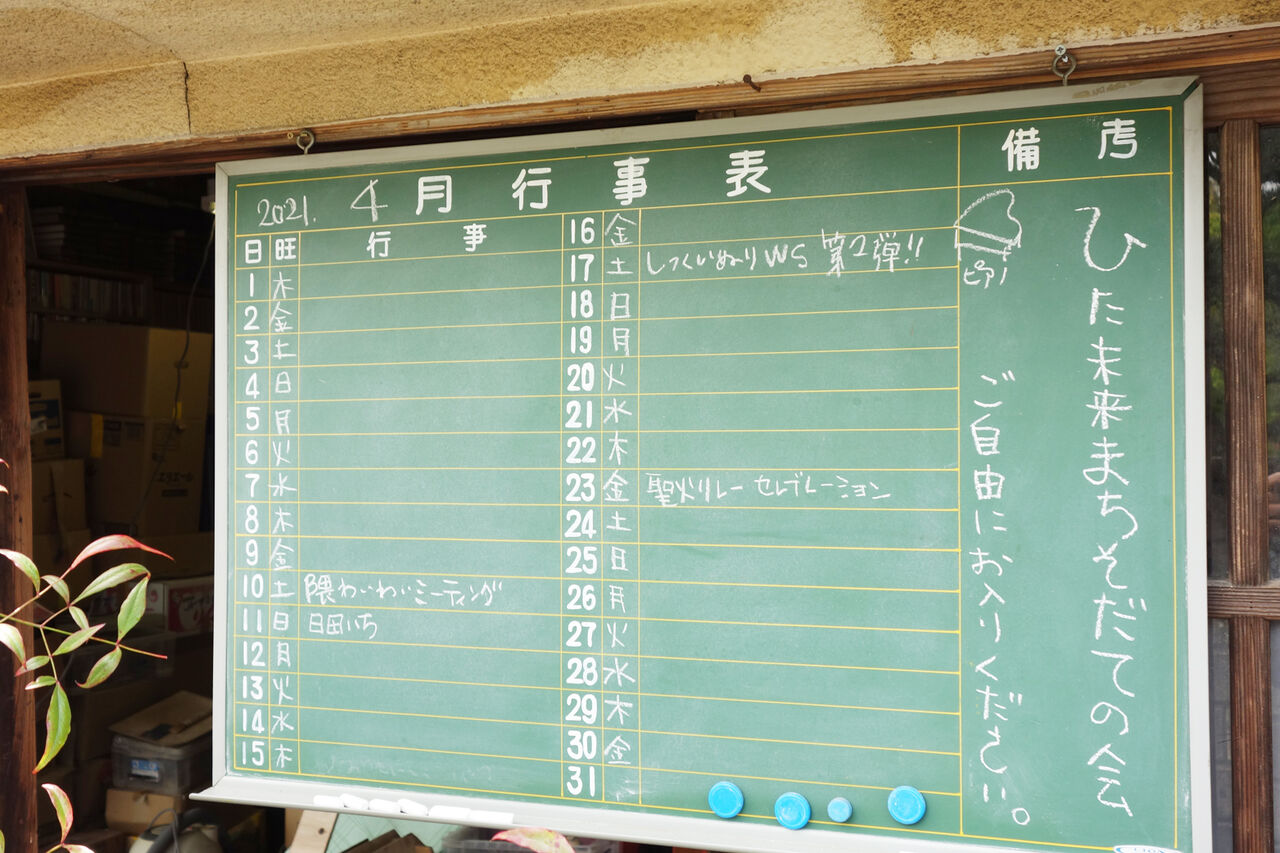 2021. 4月行事表
日 旺 行事
1 木
2 金
3 土
4 日
5 月
6 火
7 水
8 木
9 金
10 土 隈わいわいミーティング
11 日 日田いち
12 月
13 火
14 水
15 木
16 金
17 土 しっくいぬりWS 第2弾!!
18 日
19 月
20 火
21 水
22 木
23 金 聖火リレー セレブレーション
24 土
25 日
26 月
27 火
28 水
29 木
30 金
31
備考
ひた未来まちそだての会
ピアノ
ご自由にお入りください。
エリエール